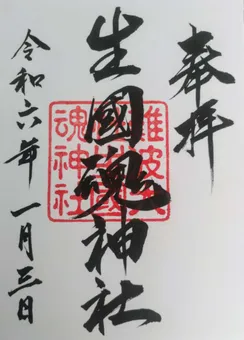 奉拝
生國魂神社
令和六年一月三日
難波大
社生國
魂神社